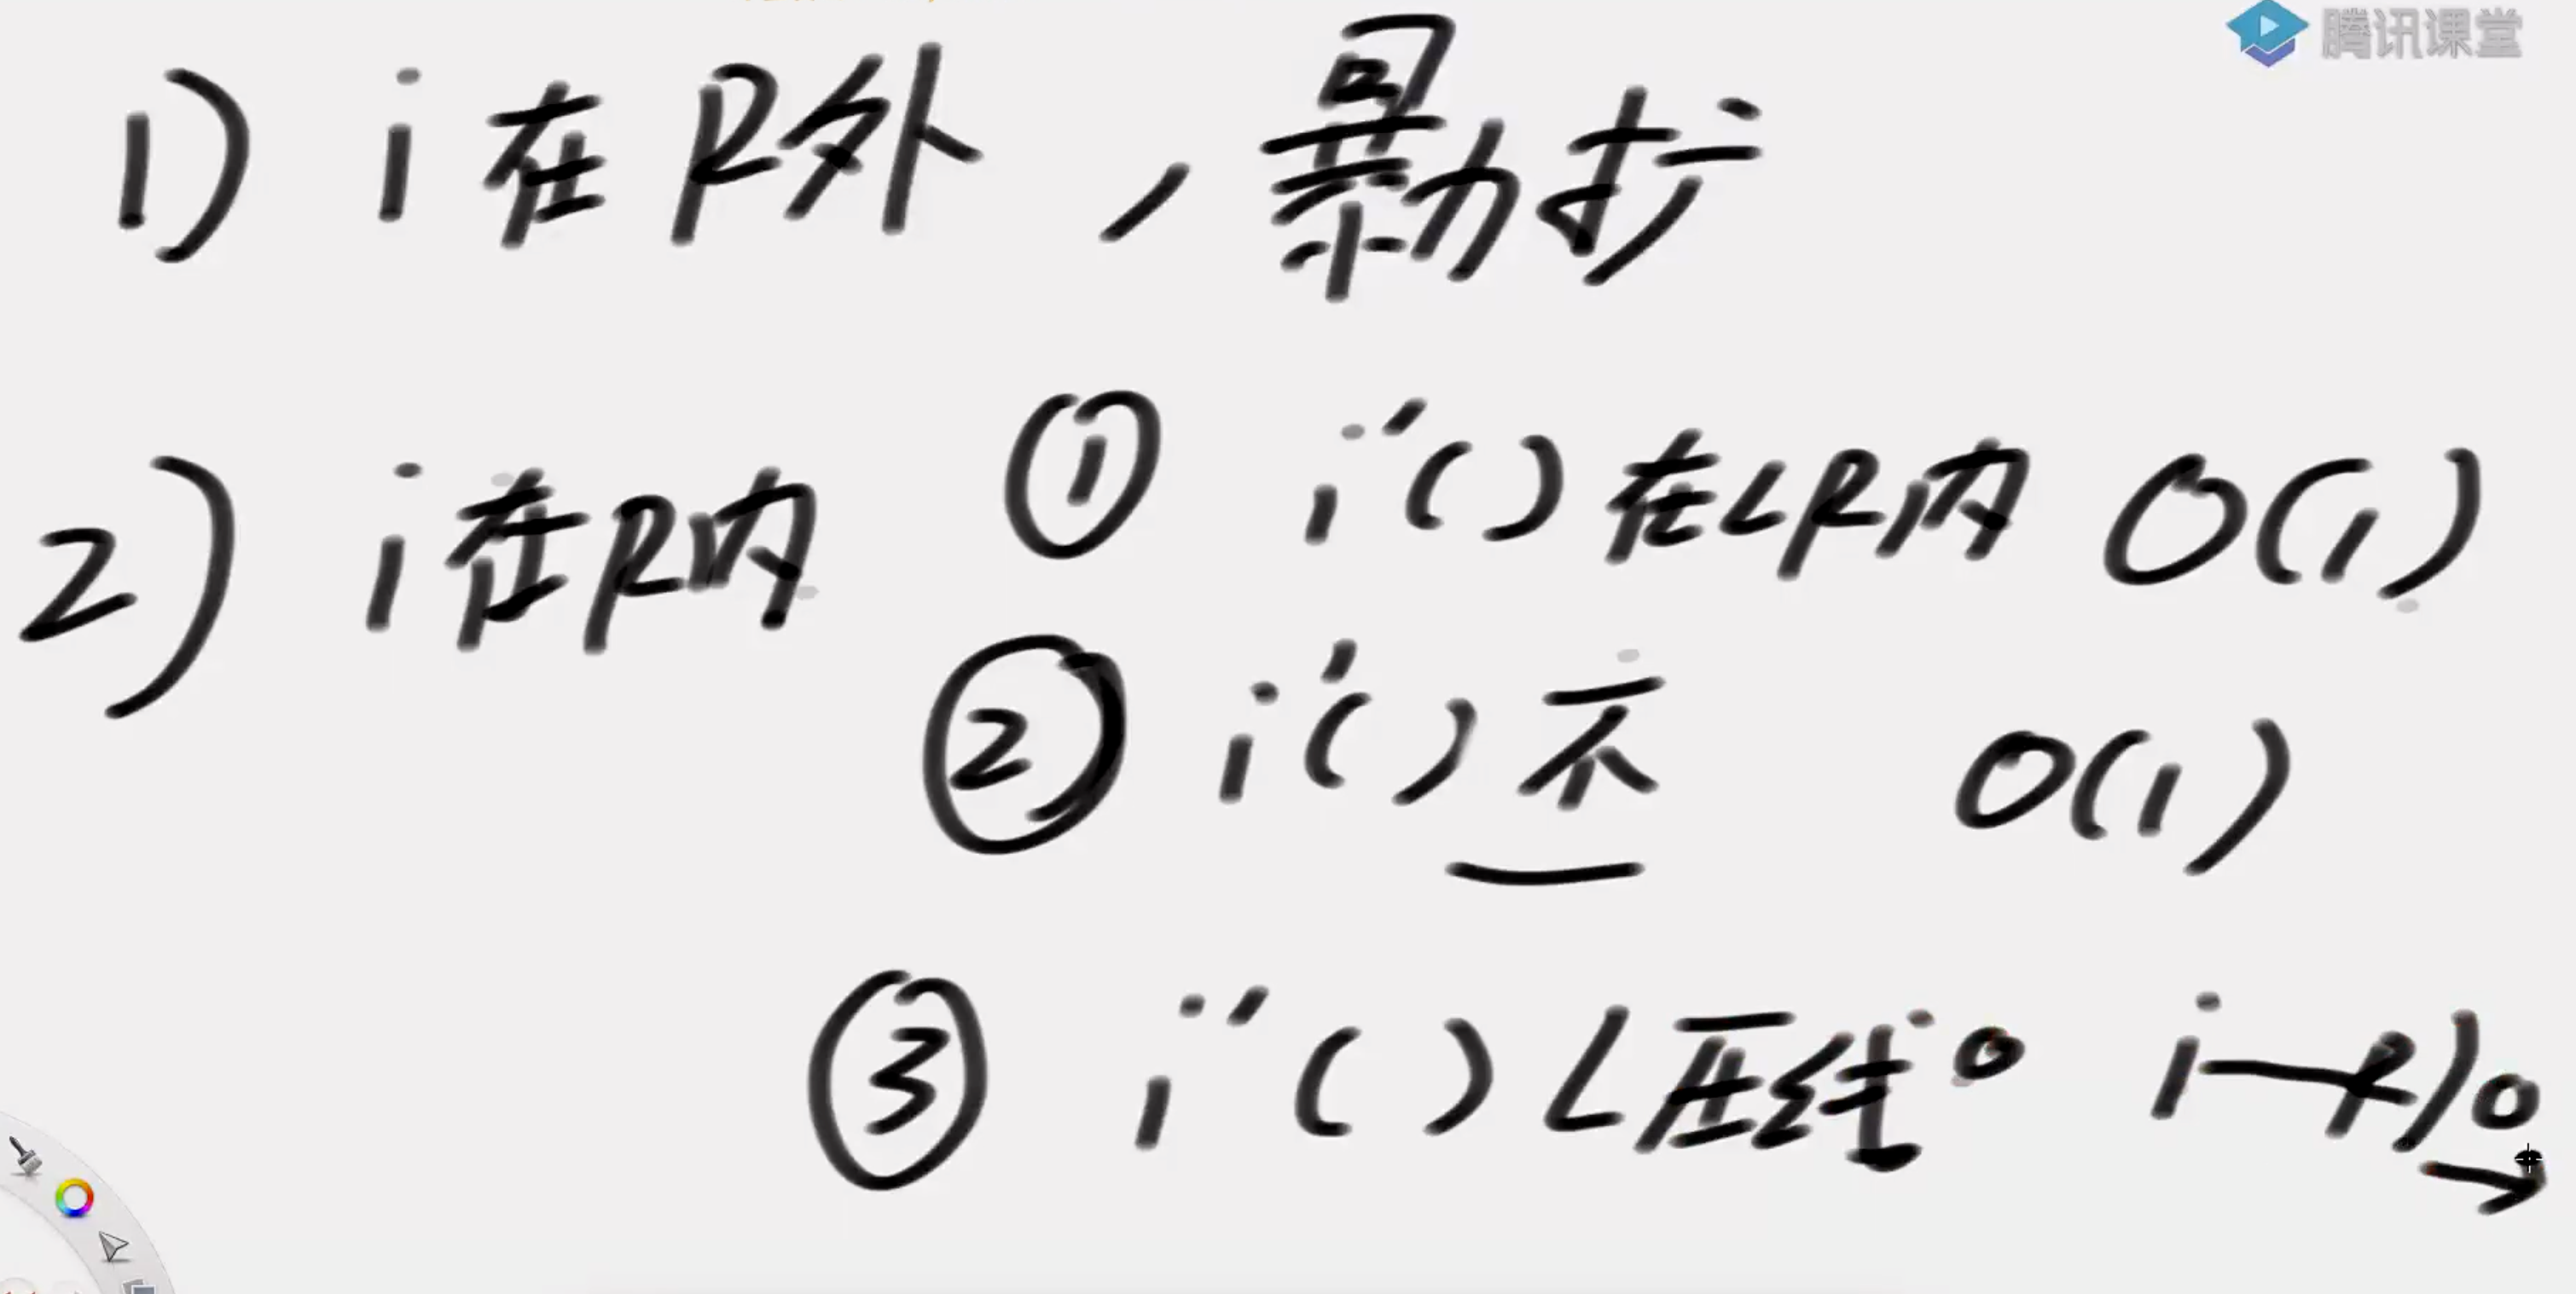 腾讯课堂
1) i在R外，暴力扩
2) i在R内 ① i'( )在LR内 O(1)
② i'( )不 O(1)
③ i'( )L压线。 i—R)。